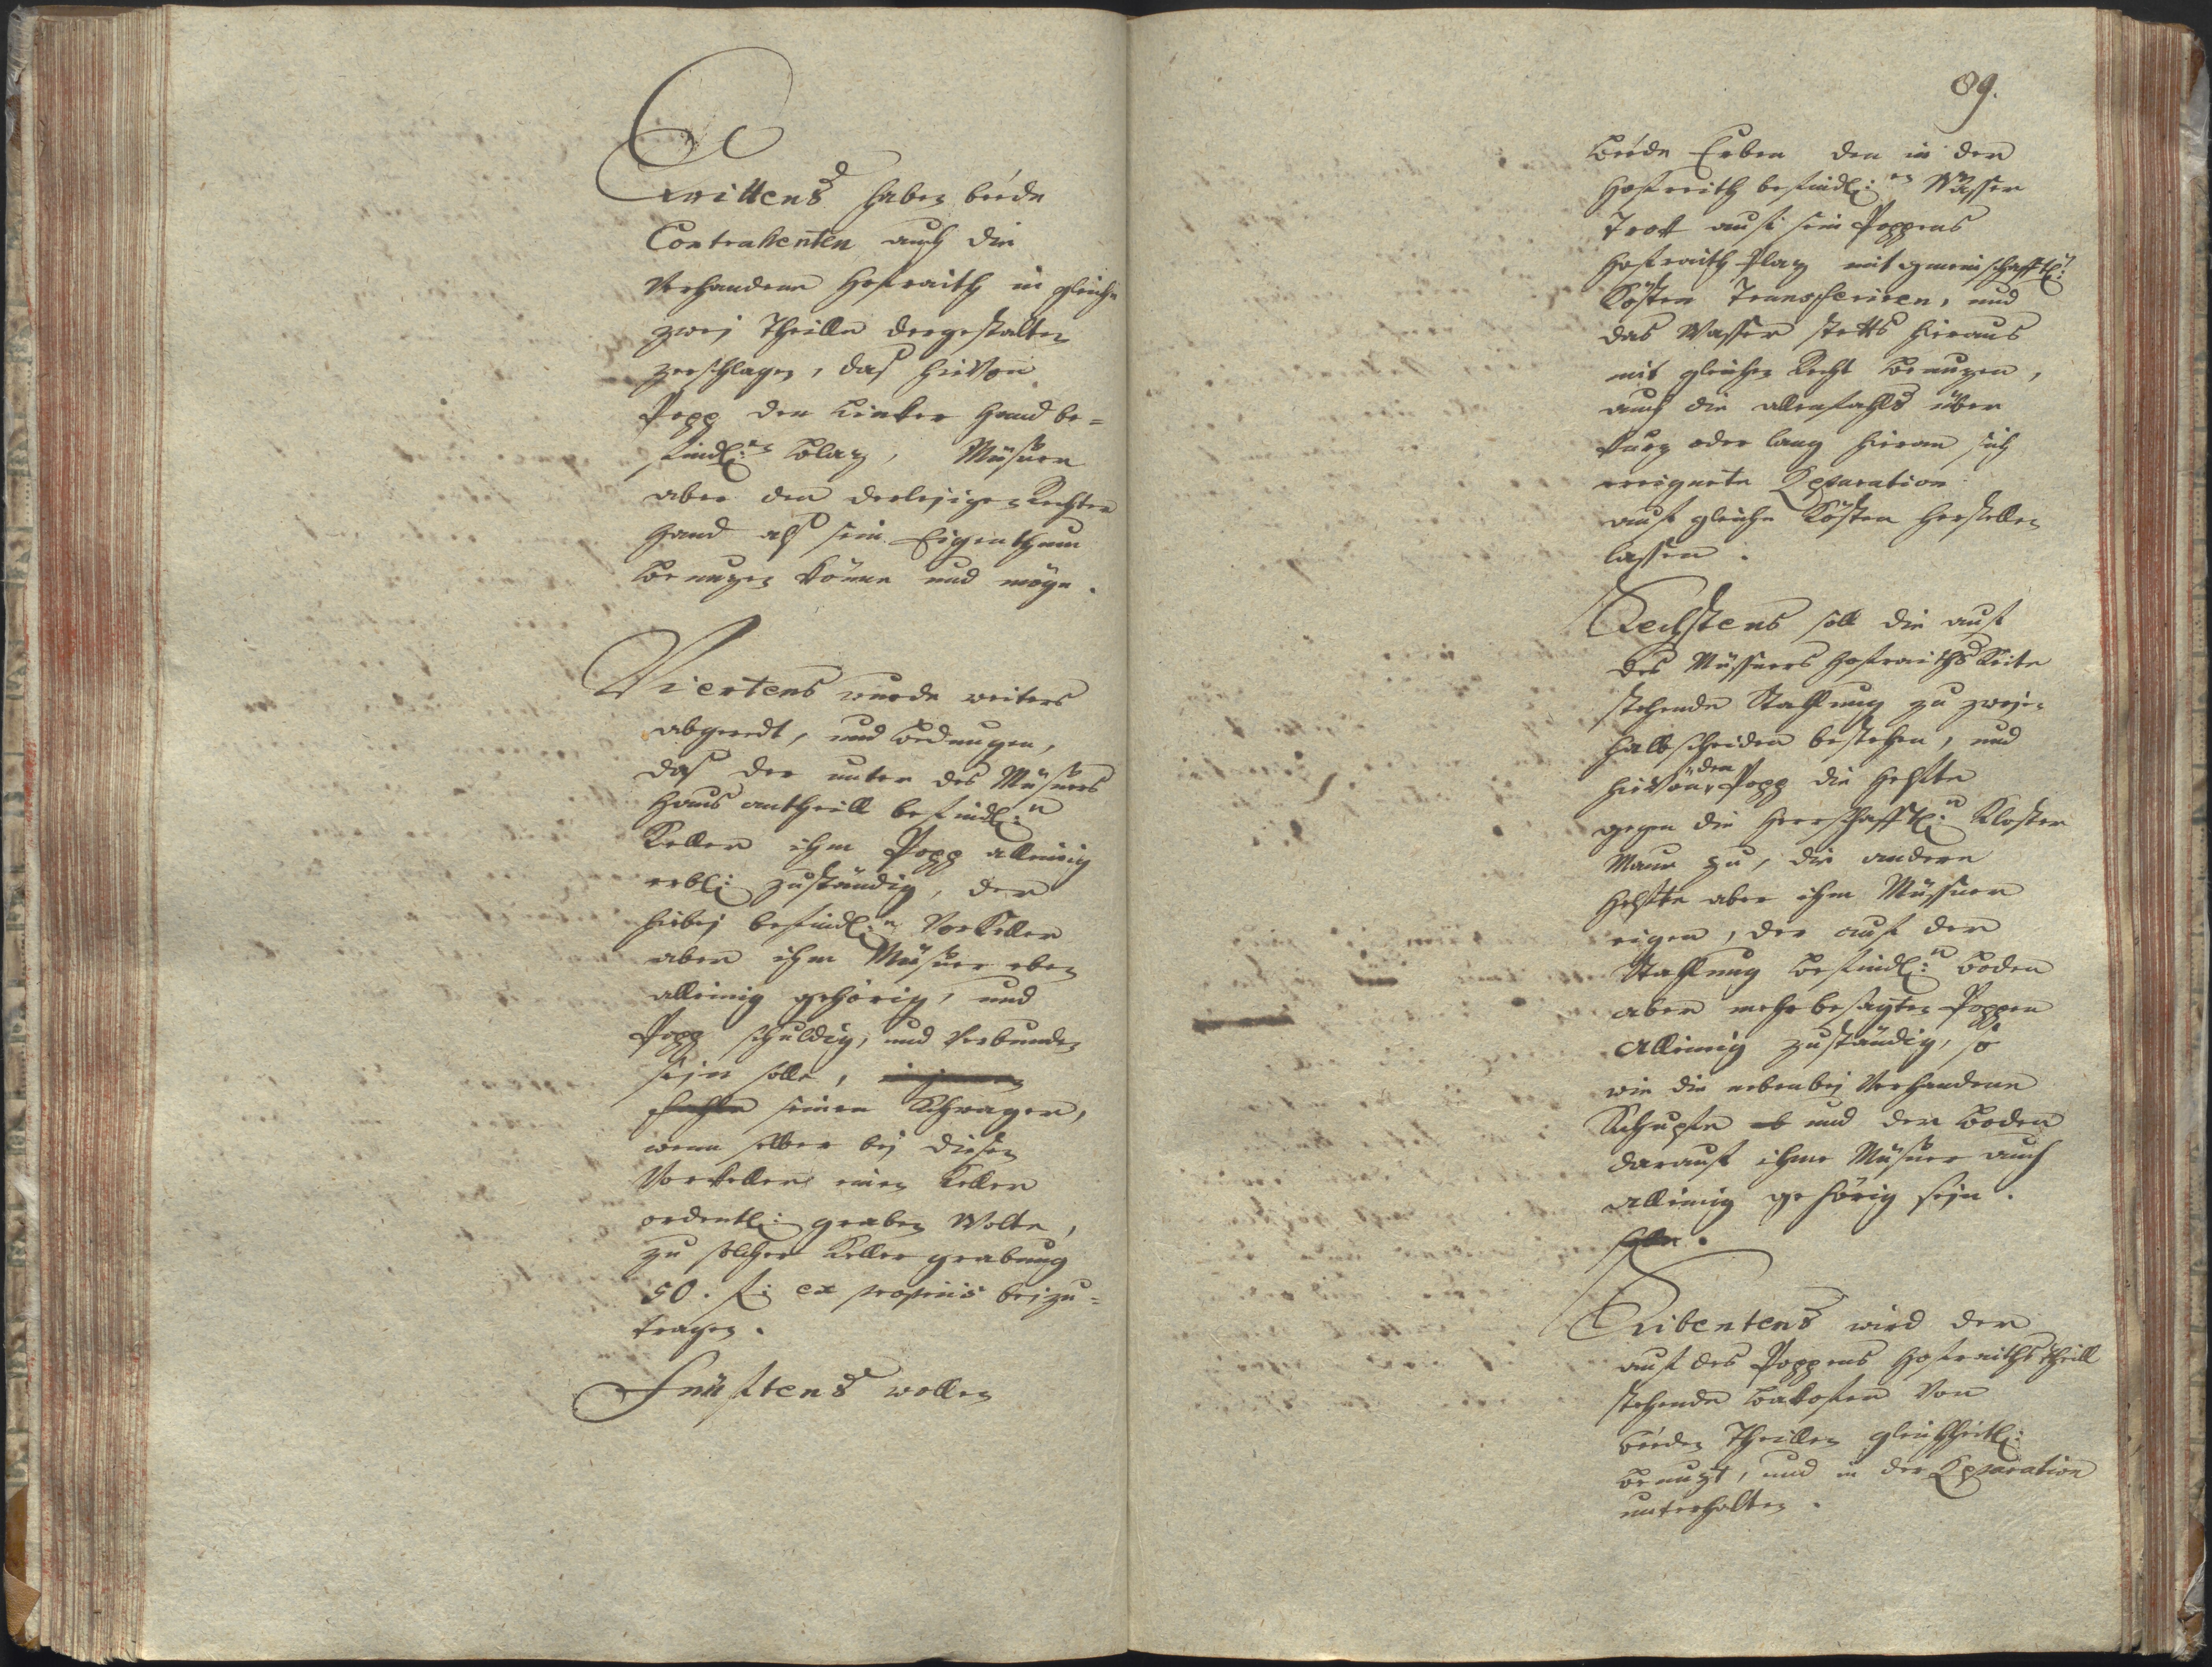 Drittens haben beede
Contrahenten auch die
Verhandene Hofraith in gleiche
zwej Theille dergestalten
zerschlagen, daß hievon
Popp den Linker Hand be=
findl:en Plaz, Müsner
aber den derleyigen Rechter
Hand alß sein Eigenthum
Benuzen könne und möge.
Viertens wurde weiters
abgeredt, und Bedungen,
daß der unter des Müsners
Haus antheill befindl:e
Keller ihm Popp alleinig
erbl: zuständig, der
hiebej befindl:e VorKeller
aber ihm Müsner eben
alleinig gehörig, und
Popp schuldig, und Verbunden
sejn solle,
seinen Schwagern,
wenn selber bej diesen
Vorkeller einen Keller
ordentl: graben Wolte,
zu solcher Keller grabung
50. f: ex propriis bejzu=
tragen.
Fünftens wollen
89.
Beede Erben den in der
Hofreith befindl:en Wasser
Trott auf sein Poppens
Hofraith Plaz mit gmeinschafftl:
Kösten Transferiren, und
das Wasser stetts hieraus
mit gleichen Recht Benuzen,
auch die allenfahls über
kurz oder lang hieran sich
ereignete Reparation
auf gleiche Kösten herstellen
lassen.
Sechstens soll die auf
des Müssners Hofraiths Seite
stehende Stallung zu zwej=
halbscheiden bestehen, und
hievon den Popp die Helfte
gegen die Herrschafftl:e Kloster
Maur zu, die andere
Helfte aber ihm Müssner
eigen, der auf der
Stallung Befindl:e Boden
aber mehr besagten Poppen
Alleinig zuständig, so
wie die nebenbej Verhandene
Schupfen und der Boden
darauf ihme Müsner auch
alleinig gehörig sejn.
solle.
Siebentens wird der
auf des Poppens Hofraiths theill
stehende Bakofen Von
Beeden Theillen gleichheitl:
Benuzt, und in der Reparation
unterhalten.